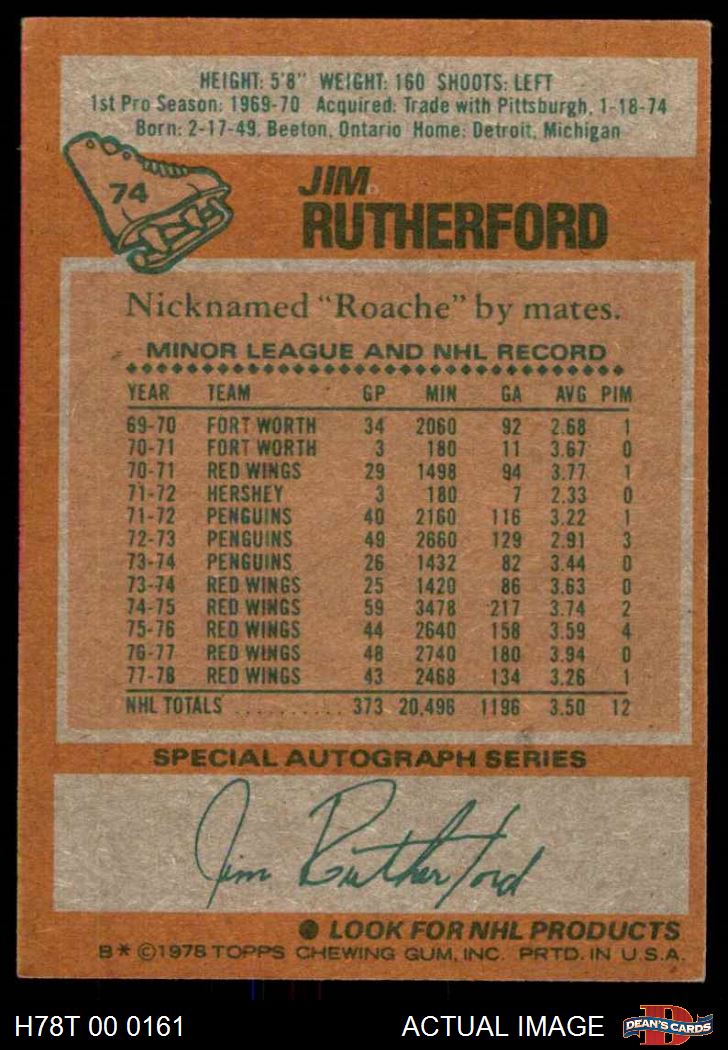 HEIGHT: 5'8" WEIGHT: 160 SHOOTS: LEFT
1st Pro Season: 1969-70 Acquired: Trade with Pittsburgh, 1-18-74
Born: 2-17-49, Beeton, Ontario Home: Detroit, Michigan
74
JIM
RUTHERFORD
Nicknamed "Roache" by mates.
MINOR LEAGUE AND NHL RECORD
YEAR TEAM GP MIN GA AVG PIM
69-70 FORT WORTH 34 2060 92 2.68 1
70-71 FORT WORTH 3 180 11 3.67 0
70-71 RED WINGS 29 1498 94 3.77 1
71-72 HERSHEY 3 180 7 2.33 0
71-72 PENGUINS 40 2160 116 3.22 1
72-73 PENGUINS 49 2660 129 2.91 3
73-74 PENGUINS 26 1432 82 3.44 0
73-74 RED WINGS 25 1420 86 3.63 0
74-75 RED WINGS 59 3478 217 3.74 2
75-76 RED WINGS 44 2640 158 3.59 4
76-77 RED WINGS 48 2740 180 3.94 0
77-78 RED WINGS 43 2468 134 3.26 1
NHL TOTALS .......... 373 20,496 1196 3.50 12
SPECIAL AUTOGRAPH SERIES
Jim Rutherford
LOOK FOR NHL PRODUCTS
B* ©1978 TOPPS CHEWING GUM, INC. PRTD. IN U.S.A.
H78T 00 0161 ACTUAL IMAGE D DEAN'S CARDS